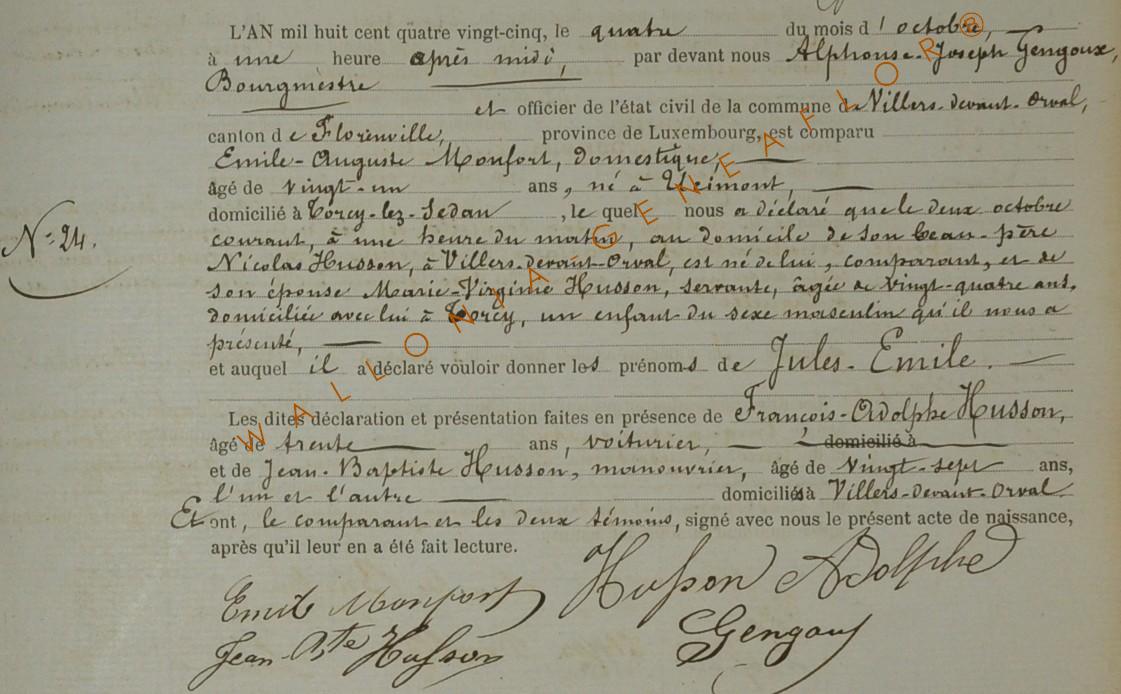 L'AN mil huit cent quatre vingt-cinq, le quatre du mois d'octobre,
à une heure après midi, par devant nous Alphonse-Joseph Gengoux,
Bourgmestre
et officier de l'état civil de la commune de Villers-devant-Orval,
canton de Florenville, province de Luxembourg, est comparu
Emile-Auguste Monfort, domestique,
âgé de vingt-un ans, né à
domicilié à Torcy-lez-Sedan, lequel nous a déclaré que le deux octobre
N° 24.
courant, à une heure du matin, au domicile de son beau-père
Nicolas Husson, à Villers-devant-Orval, est né de lui, comparant, et de
son épouse Marie-Virginie Husson, servante, âgée de vingt-quatre ans,
domiciliée avec lui à Torcy, un enfant du sexe masculin qu'il nous a
présenté,
et auquel il a déclaré vouloir donner les prénoms de Jules-Emile.
Les dites déclaration et présentation faites en présence de François-Adolphe Husson,
âgé de trente ans, voiturier, domicilié à
et de Jean-Baptiste Husson, manouvrier, âgé de vingt-sept ans,
l'un et l'autre domiciliés à Villers-devant-Orval
Et ont, le comparant et les deux témoins, signé avec nous le présent acte de naissance,
après qu'il leur en a été fait lecture.
Emile Monfort Husson Adolphe
Jean-Bte Husson Gengoux
WALLONIA GENEAFLOR®